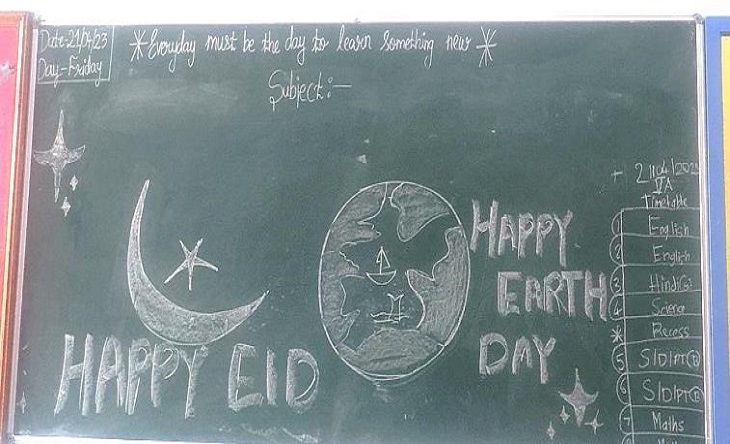 Date-21/04/23
Day-Friday
*Everyday must be the day to learn something new*
Subject:-
HAPPY EID
HAPPY
EARTH
DAY
21/04/202
VA
Timetable
1 English
2 English
3 Hindi(2)
4 Science
* Recess
5 S/D/PT
6 S/D/PT
7 Maths